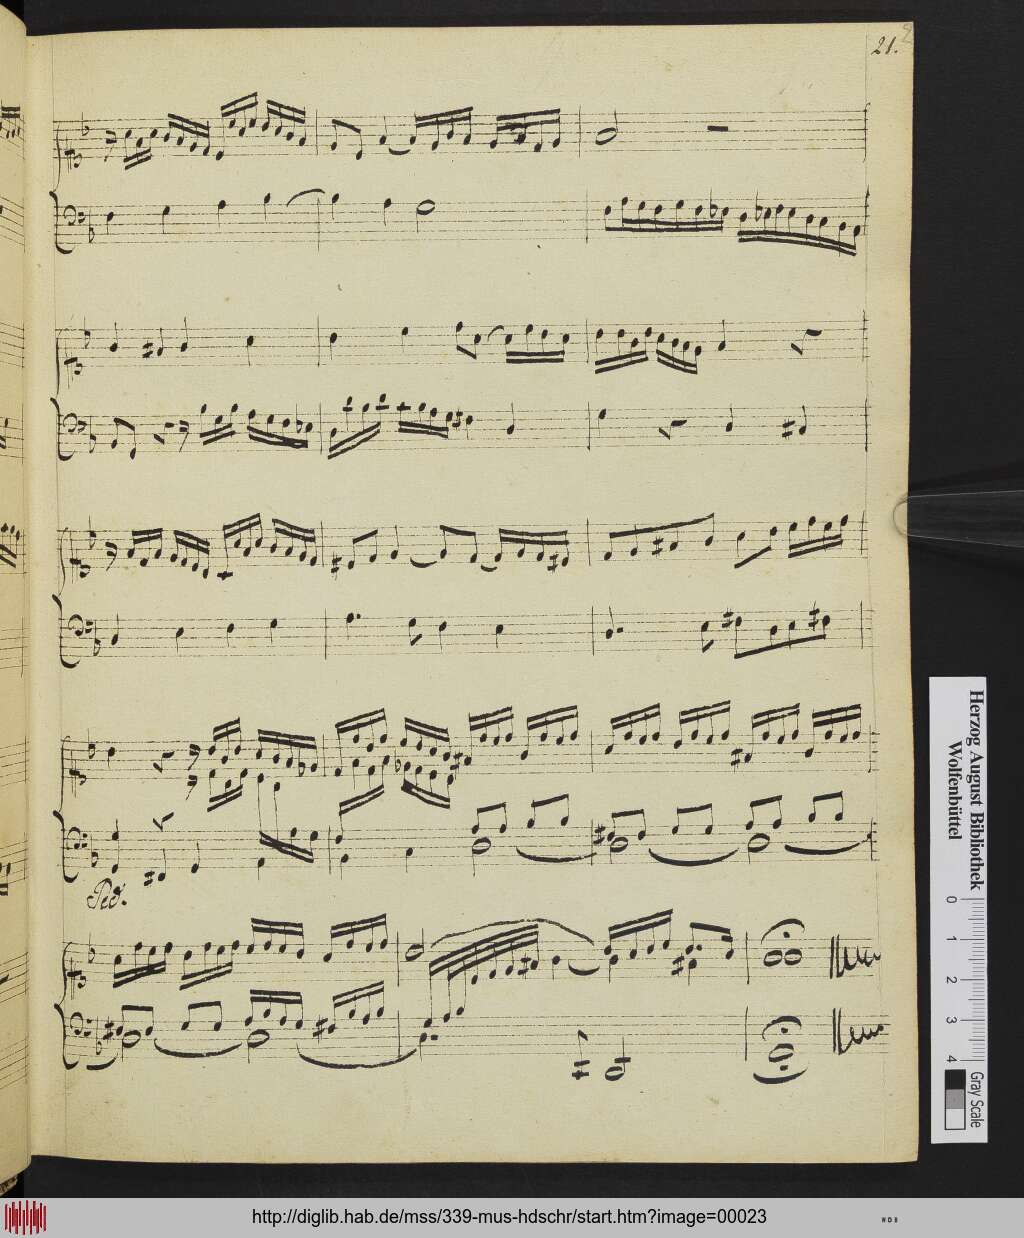 21.
Ped.
Herzog August Bibliothek
Wolfenbüttel
0 1 2 3 4
Gray Scale
http://diglib.hab.de/mss/339-mus-hdschr/start.htm?image=00023